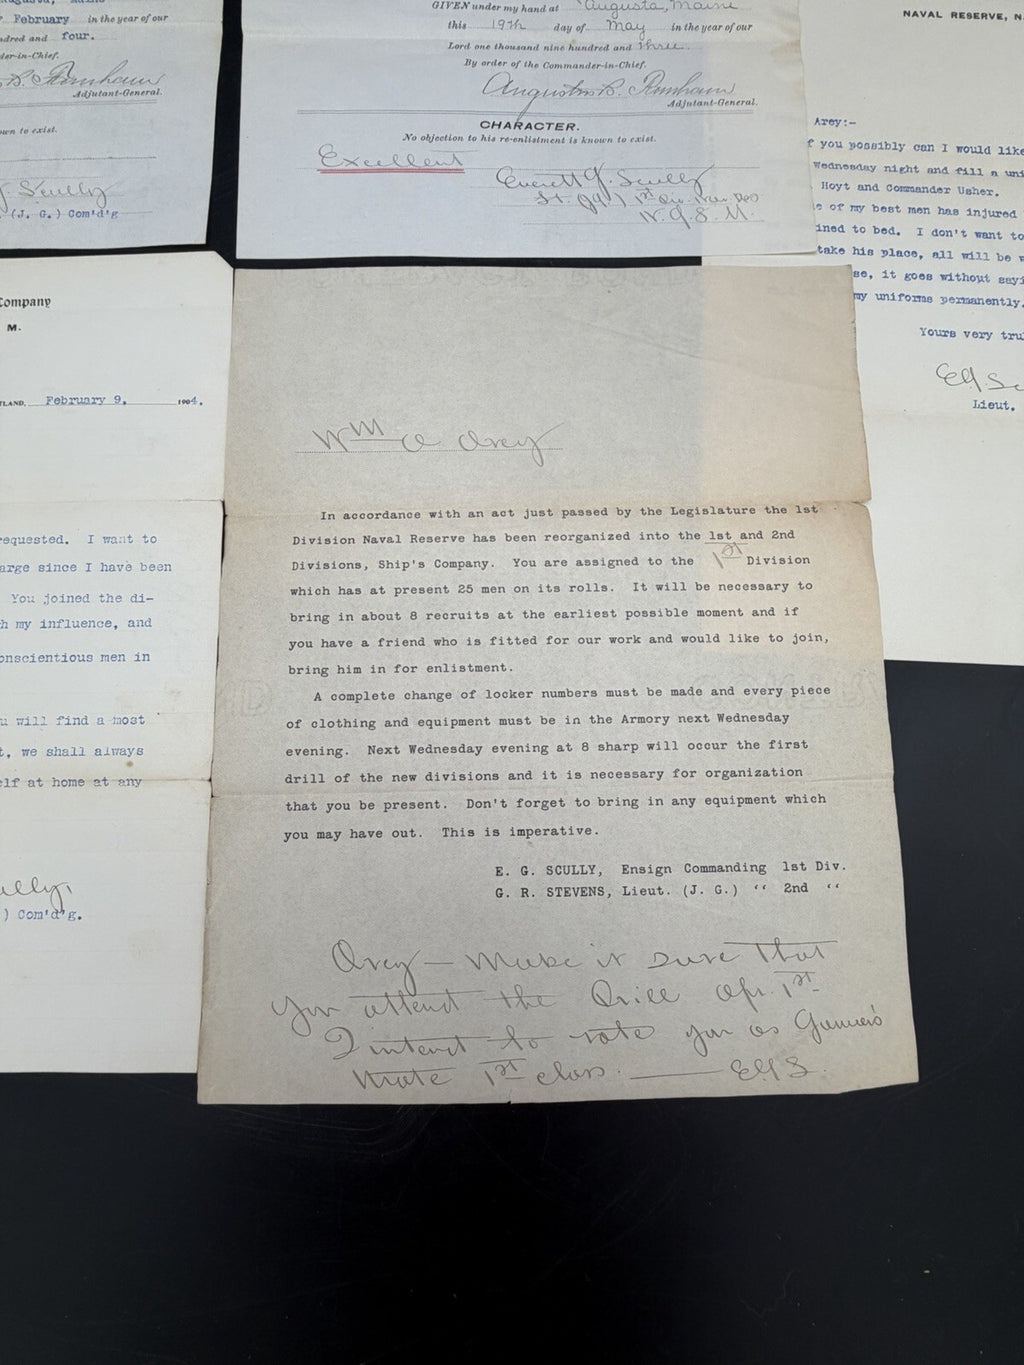 February in the year of our
ndred and four.
der-in-Chief.
Adjutant-General.
own to exist.
Scully
(J. G.) Com'd'g
GIVEN under my hand at Augusta, Maine
this 19th day of May in the year of our
Lord one thousand nine hundred and three.
By order of the Commander-in-Chief.
Augustus B. Farnham
Adjutant-General.
CHARACTER.
No objection to his re-enlistment is known to exist.
Excellent
Everett G. Scully
N. G. S. M.
NAVAL RESERVE, N.
Arey:-
f you possibly can I would like
Wednesday night and fill a uni
Hoyt and Commander Usher.
e of my best men has injured
ined to bed. I don't want to
take his place, all will be w
se, it goes without sayi
my uniforms permanently.
Yours very tru
EG. Sc
Lieut.
Company
M.
TLAND, February 9, 1904.
requested. I want to
arge since I have been
You joined the di-
h my influence, and
onscientious men in
u will find a most
t, we shall always
elf at home at any
cully,
) Com'd'g.
Wm O Arey
In accordance with an act just passed by the Legislature the 1st
Division Naval Reserve has been reorganized into the 1st and 2nd
Divisions, Ship's Company. You are assigned to the 1st Division
which has at present 25 men on its rolls. It will be necessary to
bring in about 8 recruits at the earliest possible moment and if
you have a friend who is fitted for our work and would like to join,
bring him in for enlistment.
A complete change of locker numbers must be made and every piece
of clothing and equipment must be in the Armory next Wednesday
evening. Next Wednesday evening at 8 sharp will occur the first
drill of the new divisions and it is necessary for organization
that you be present. Don't forget to bring in any equipment which
you may have out. This is imperative.
E. G. SCULLY, Ensign Commanding 1st Div.
G. R. STEVENS, Lieut. (J. G.) “ 2nd “
Arey — Make it sure that
you attend the Drill Apr. 1st
I intend to rate you as Gunner's
Mate 1st class. — EGS.